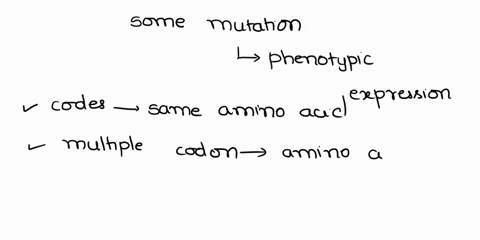 some mutation
↳ phenotypic
expression
✓ codes → same amino acid
✓ multiple codon → amino a